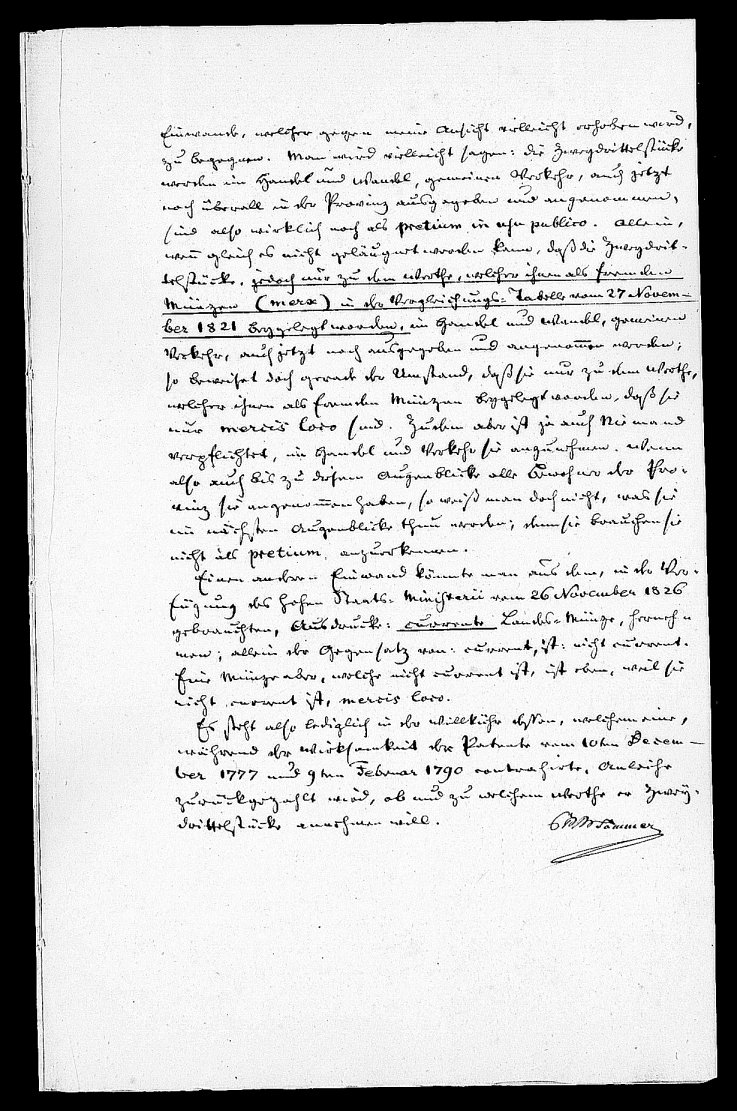 Einwande, welcher gegen meine Ansicht vielleicht erhoben wird,
zu begegnen. Man wird vielleicht sagen: die Zweydrittelstücke
werden im Handel und Wandel, gemeinen Verkehr, auch jetzt
noch überall in der Provinz ausgegeben und angenommen,
sind also wirklich noch als pretium in usu publico. Allein,
wenn gleich es nicht geläugnet werden kann, daß die Zweydrit-
telstücke, jedoch nur zu dem Werthe, welcher ihnen als fremden
Münzen (merx) in der Vergleichungs-Tabelle vom 27 Novem-
ber 1821 beygelegt worden, im Handel und Wandel, gemeinen
Verkehr, auch jetzt noch ausgegeben und angenommen werden;
so beweiset doch gerade der Umstand, daß sie nur zu dem Werthe,
welcher ihnen als fremden Münzen beygelegt worden, daß sie
nur mercis loco sind. Zudem aber ist ja auch Niemand
verpflichtet, im Handel und Verkehr sie anzunehmen. Wenn
also auch bis zu diesem Augenblicke alle Bewohner der Pro-
vinz sie angenommen haben, so weiß man doch nicht, was sie
im nächsten Augenblicke thun werden; denn sie brauchen sie
nicht als pretium anzuerkennen.
Einen anderen Einwand könnte man aus dem, in der Ver-
fügung des hohen Staats-Ministerii vom 26 November 1826
gebrauchten, Ausdrucke: currente Landes-Münze, herneh-
men; allein der Gegensatz von: current, ist: nicht current.
Eine Münze aber, welche nicht current ist, ist eben, weil sie
nicht current ist, mercis loco.
Es steht also lediglich in der Willkühr dessen, welchem eine,
während der Wirksamkeit der Patente vom 10ten Decem-
ber 1777 und 9ten Februar 1790 contrahirte, Anleihe
zurückgezahlt wird, ob und zu welchem Werthe er Zwey-
drittelstücke annehmen will.
Sommer